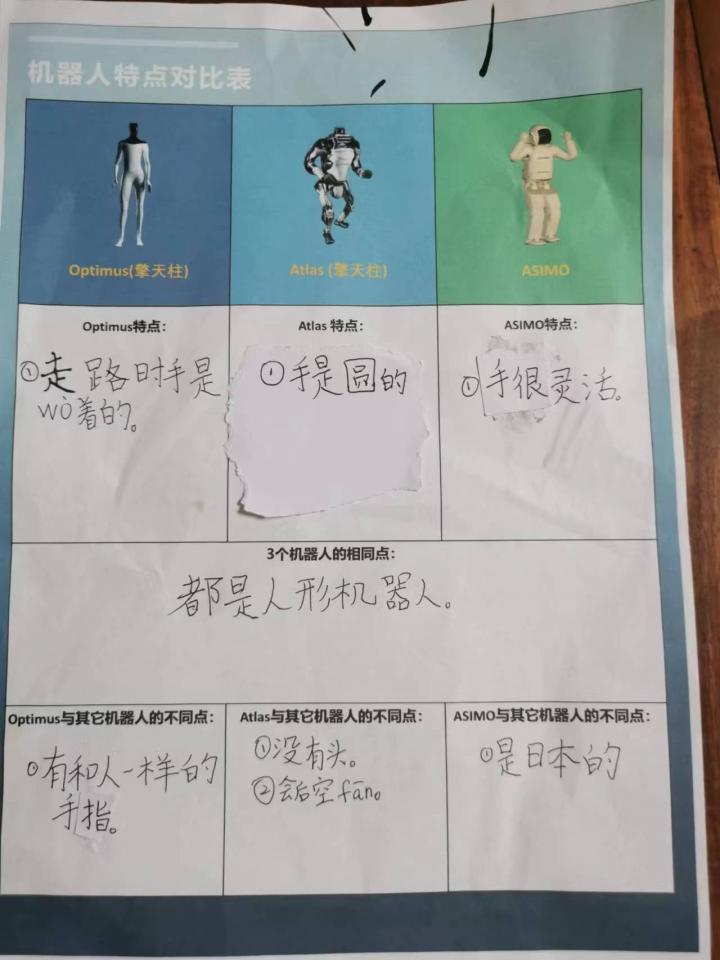 机器人特点对比表
Optimus(擎天柱)
Atlas (擎天柱)
ASIMO
Optimus特点：
Atlas 特点：
ASIMO特点：
①走路时手是
wò着的。
①手是圆的
①手很灵活。
3个机器人的相同点：
都是人形机器人。
Optimus与其它机器人的不同点：
Atlas与其它机器人的不同点：
ASIMO与其它机器人的不同点：
①有和人一样的
手指。
①没有头。
②会后空fān。
①是日本的